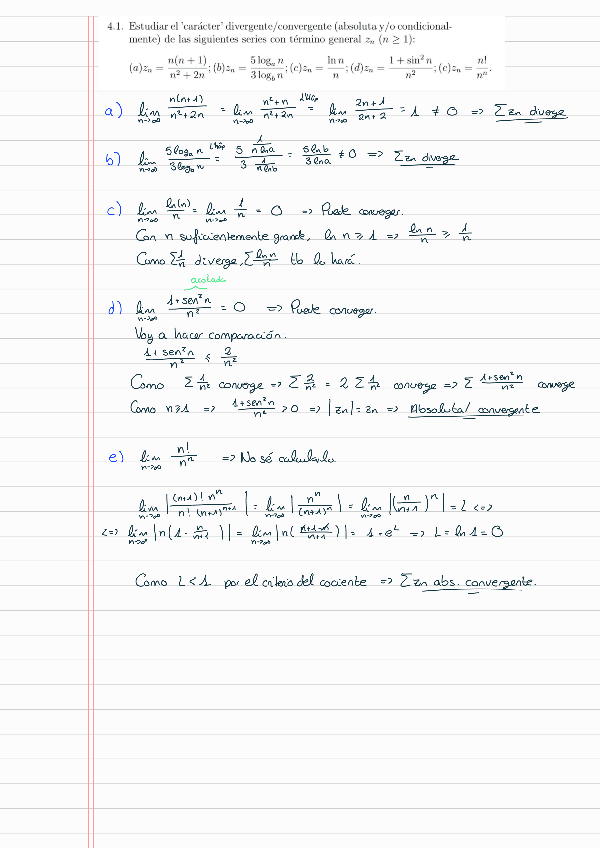 4.1. Estudiar el 'carácter' divergente/convergente (absoluta y/o condicional-
mente) de las siguientes series con término general zₙ (n ≥ 1):
(a)zₙ = n(n + 1)/(n² + 2n); (b)zₙ = 5 logₐ n/(3 log_b n); (c)zₙ = ln n/n; (d)zₙ = (1 + sin² n)/n²; (e)zₙ = n!/nⁿ.
a) lim n→∞ n(n+1)/(n²+2n) = lim n→∞ (n²+n)/(n²+2n) L'Hôp = lim n→∞ (2n+1)/(2n+2) = 1 ≠ 0 => Σzn diverge
b) lim n→∞ 5 logₐ n/(3 log_b n) L'Hôp = 5 (1/(n ln a))/(3 (1/(n ln b))) = 5 ln b/(3 ln a) ≠ 0 => Σzn diverge
c) lim n→∞ ln(n)/n = lim n→∞ 1/n = 0 => Puede converger.
Con n suficientemente grande, ln n ≥ 1 => ln n/n ≥ 1/n
Como Σ1/n diverge, Σ ln n/n tb lo hará.
acotada
d) lim n→∞ (1+sen²n)/n² = 0 => Puede converger.
Voy a hacer comparación.
(1+sen²n)/n² ≤ 2/n²
Como Σ 1/n² converge => Σ 2/n² = 2 Σ 1/n² converge => Σ (1+sen²n)/n² converge
Como n≥1 => (1+sen²n)/n² > 0 => |zn| = zn => Absoluta/ convergente
e) lim n→∞ n!/nⁿ => No sé calcularlo
lim n→∞ |(n+1)! nⁿ/(n! (n+1)ⁿ⁺¹)| = lim n→∞ |nⁿ/(n+1)ⁿ| = lim n→∞ |(n/(n+1))ⁿ| = L <=>
<=> lim n→∞ |n(1 - n/(n+1))| = lim n→∞ |n((n+1-n)/(n+1))| = 1 = e^L => L = ln 1 = 0
Como L < 1 por el criterio del cociente => Σzn abs. convergente.